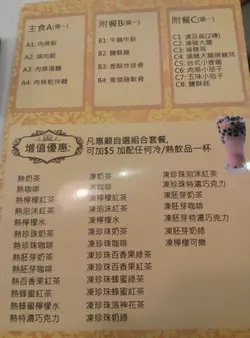 主食A(選一)
A1: 肉燥飯
A2: 滷肉飯
A3: 肉燥湯麵
A4: 肉燥乾拌麵
附餐B(選一)
B1: 牛腩牛筋
B2: 鹽酥雞
B3: 香酥炸排骨
B4: 蔥燒豬軟骨
附餐C(選一)
C1: 滷豆腐(2磚)
C2: 滷豬大腸
C3: 滷豬耳
C5: 台式小香腸
C6: 肉燥小茄子
C7: 五味小茄子
C8: 鹽酥菇
增值優惠:
凡惠顧自選組合套餐,
可加$5 加配任何冷/熱飲品一杯
熱奶茶
熱咖啡
熱檸檬紅茶
熱泡沫紅茶
熱檸檬水
熱珍珠奶茶
熱珍珠咖啡
熱胚芽奶茶
熱胚芽咖啡
熱百香果紅茶
熱蜂蜜紅茶
熱蜂蜜檸檬水
熱特濃巧克力
凍奶茶
凍咖啡
凍檸檬紅茶
凍泡沫紅茶
凍檸檬水
凍珍珠奶茶
凍珍珠咖啡
凍珍珠百香果綠茶
凍珍珠百香果紅茶
凍珍珠蜂蜜綠茶
凍珍珠蜂蜜紅茶
凍珍珠洛神花茶
凍珍珠奶綠
凍珍珠泡沫紅茶
凍珍珠特濃巧克力
凍胚芽奶茶
凍胚芽咖啡
凍特濃巧克力
凍胚芽奶綠
凍檸檬可樂